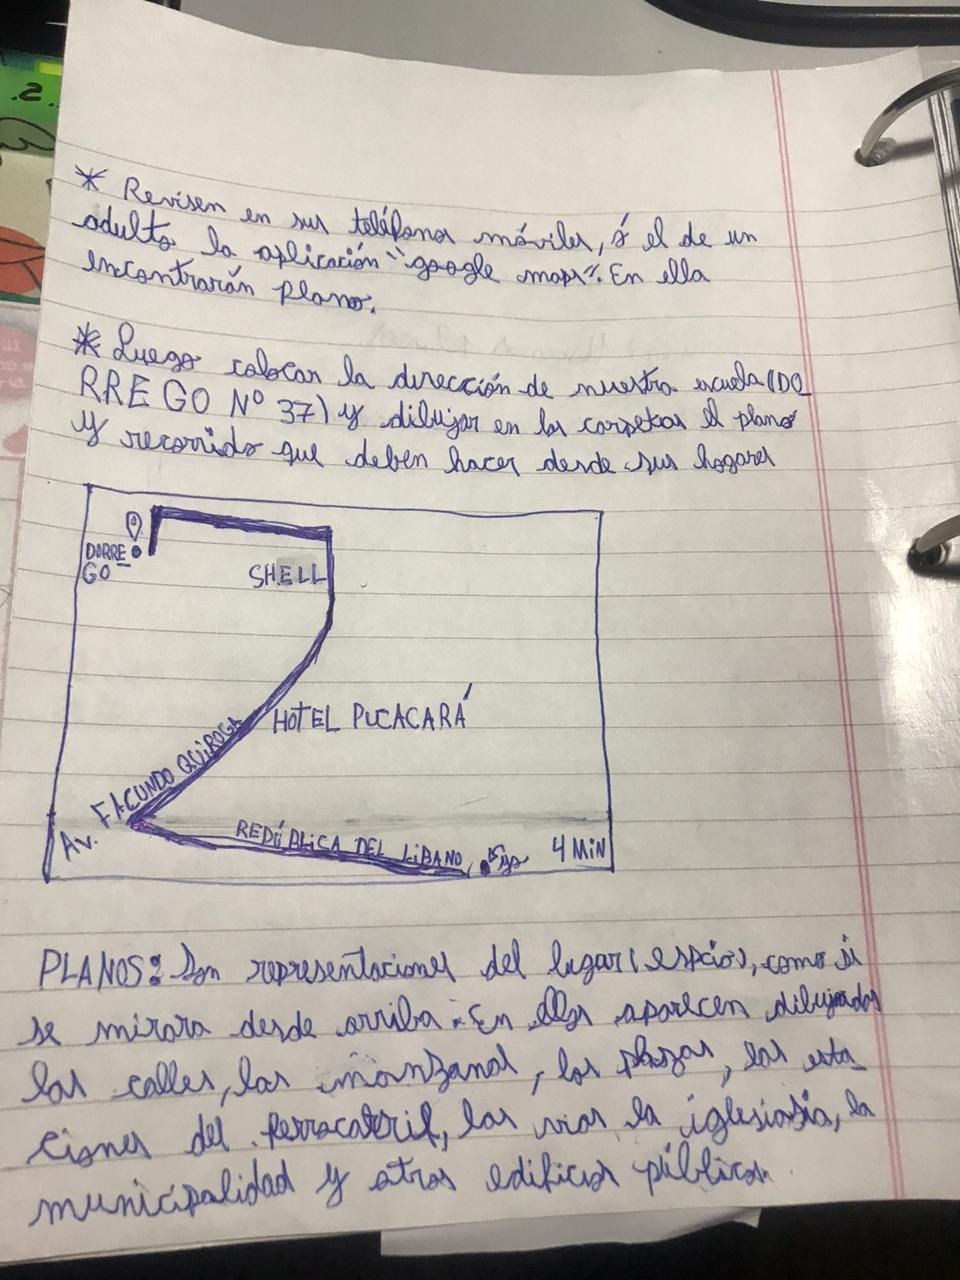 * Revisen en sus teléfonos móviles, ó el de un
adulto la aplicación "google maps". En ella
encontrarán plano.
* Luego colocar la dirección de nuestra escuela (DO
RREGO Nº 37) y dibujar en las carpetas el plano
y recorrido que deben hacer desde sus hogares
DORRE
GO
SHELL
HOTEL PUCACARÁ
Av. FACUNDO QUIROGA
REDÚBLICA DEL LIBANO
4 MIN
PLANOS: Son representaciones del lugar (espcio), como si
se mirara desde arriba. En ellos aparecen dibujados
las calles, las manzanas, las plazas, las esta
ciones del ferrocatril, las vias la
municipalidad y otros edificios públicos.